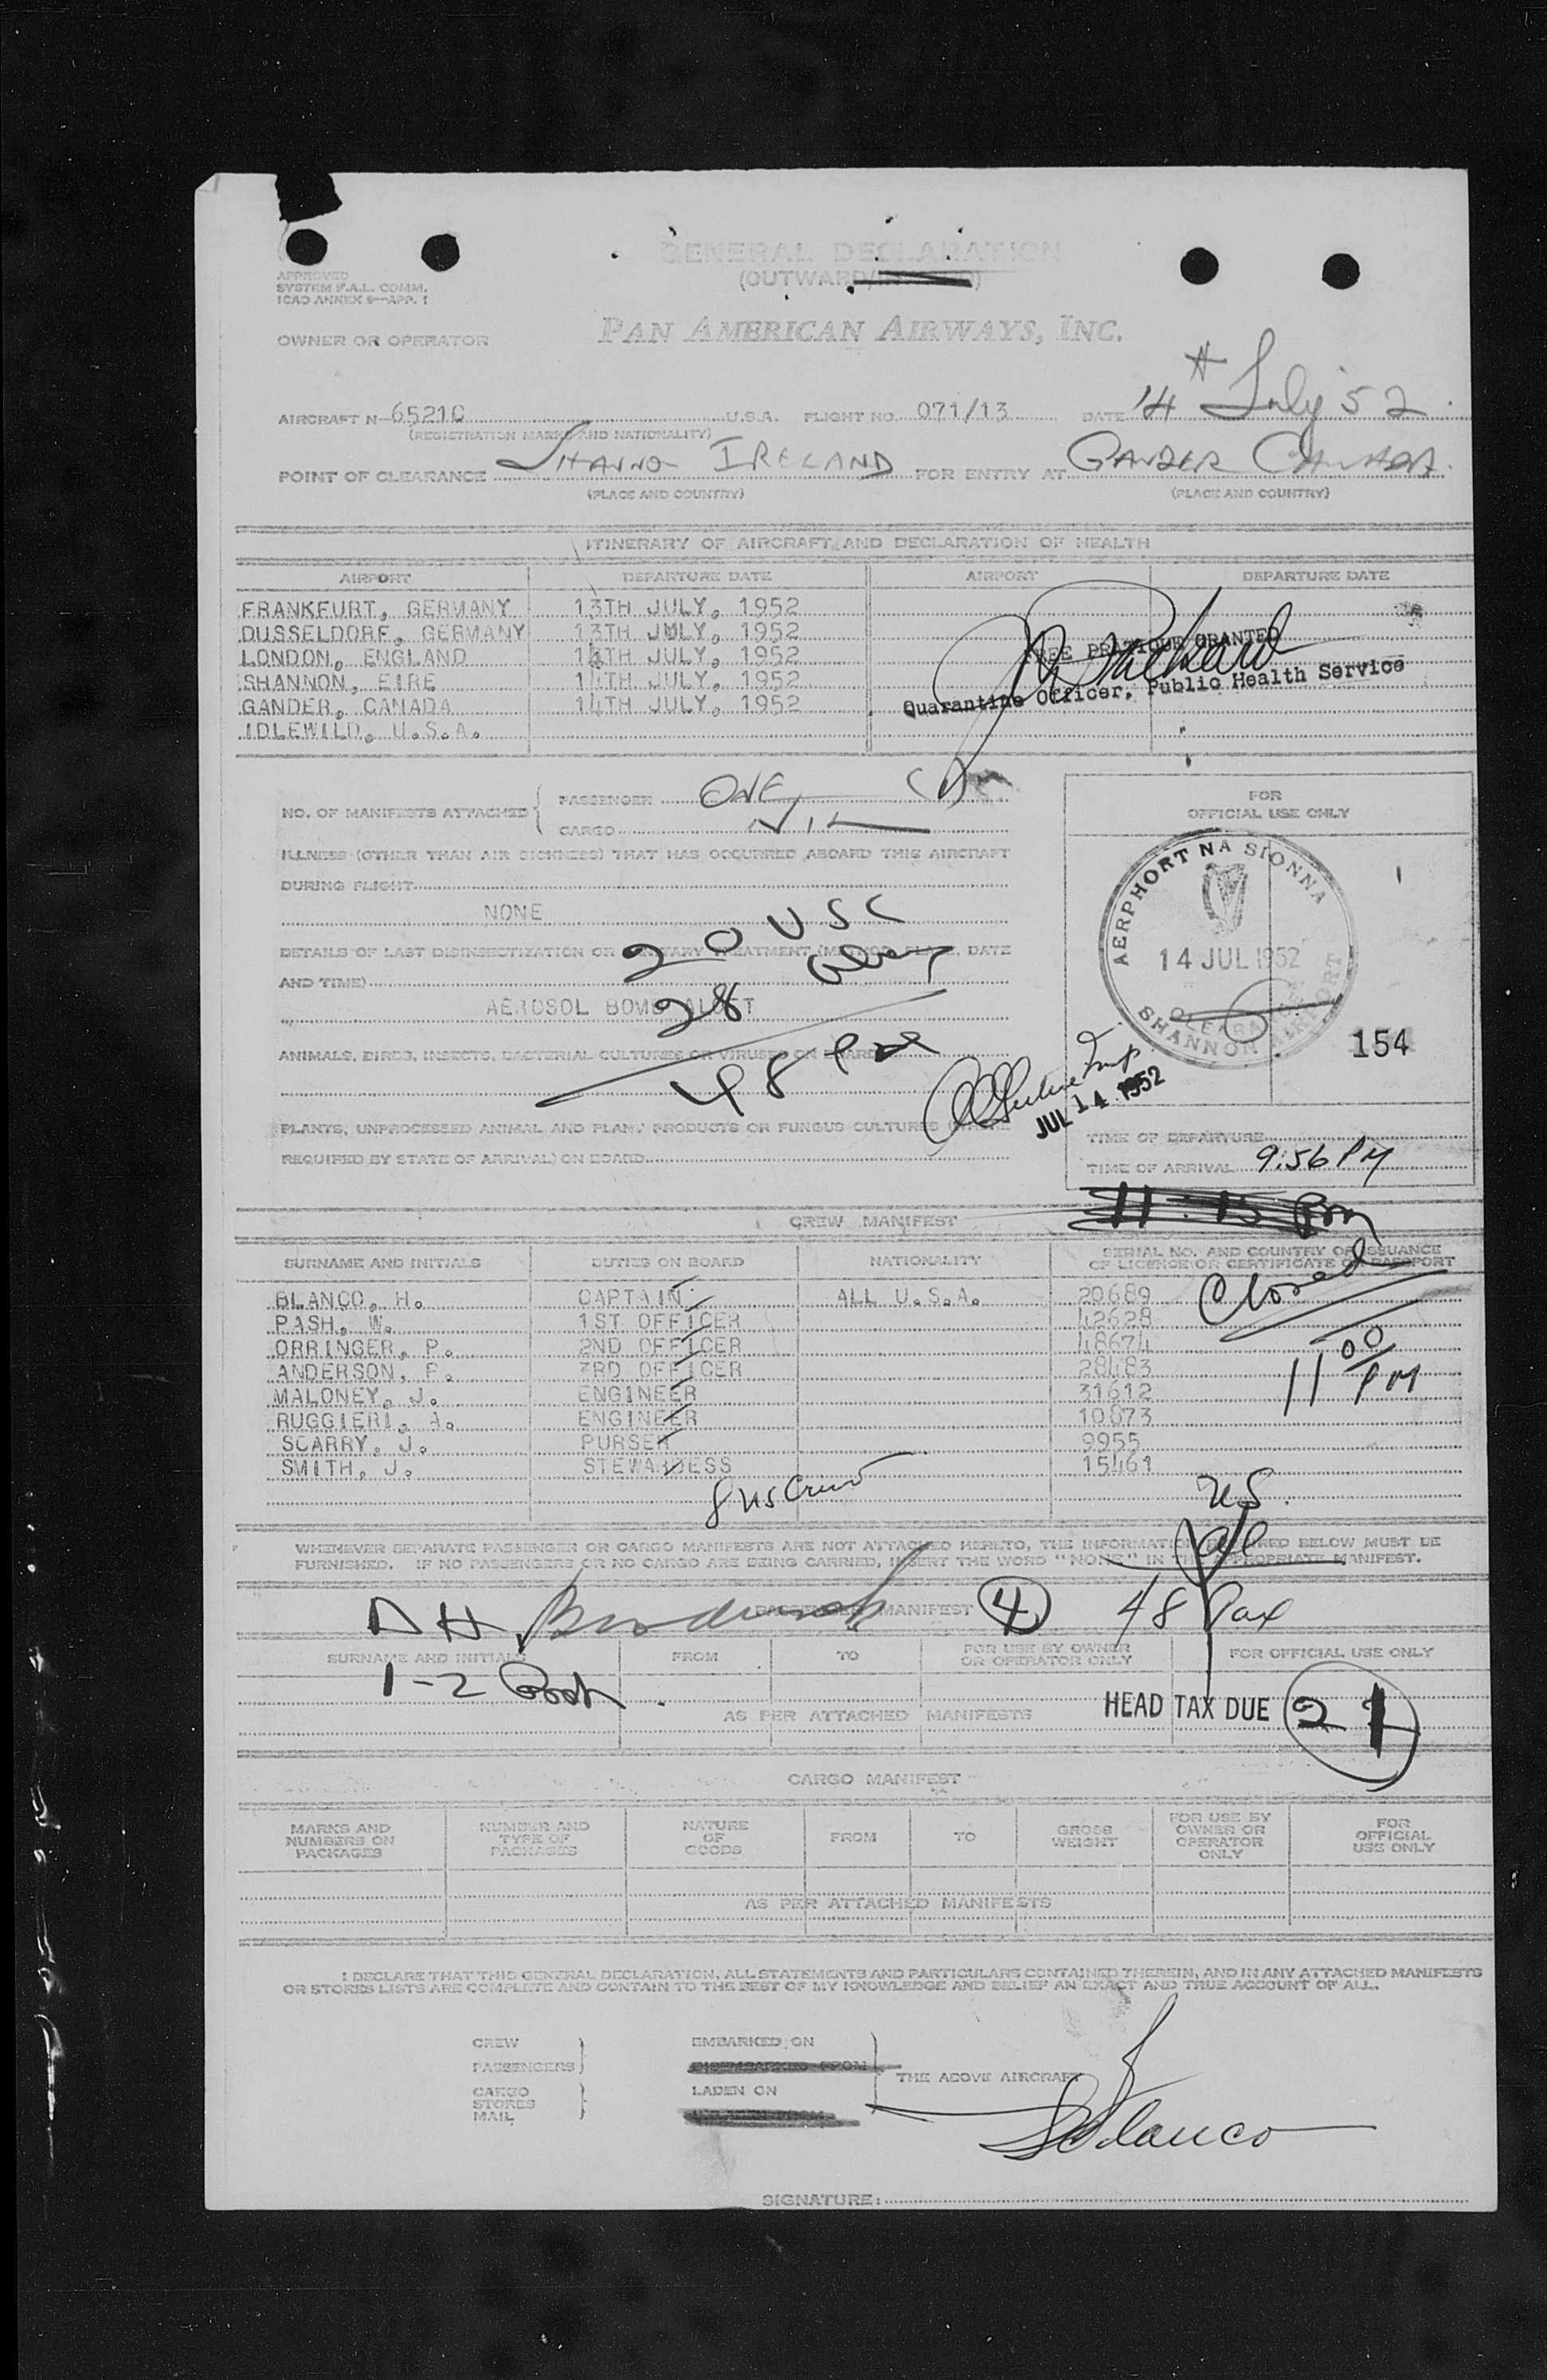 GENERAL DECLARATION
(OUTWARD/INWARD)
APPROVED
SYSTEM F.A.L. COMM.
ICAO ANNEX 9—APP. 1
OWNER OR OPERATOR PAN AMERICAN AIRWAYS, INC.
AIRCRAFT N-6521C U.S.A. FLIGHT NO. 071/13 DATE 14th July 52
(REGISTRATION MARKS AND NATIONALITY)
POINT OF CLEARANCE SHANNON IRELAND FOR ENTRY AT GANDER CANADA
(PLACE AND COUNTRY) (PLACE AND COUNTRY)
ITINERARY OF AIRCRAFT AND DECLARATION OF HEALTH
AIRPORT DEPARTURE DATE AIRPORT DEPARTURE DATE
FRANKFURT, GERMANY 13TH JULY, 1952
DUSSELDORF, GERMANY 13TH JULY, 1952
LONDON, ENGLAND 14TH JULY, 1952
SHANNON, EIRE 14TH JULY, 1952
GANDER, CANADA 14TH JULY, 1952
IDLEWILD, U.S.A.
FREE PRATIQUE GRANTED
Quarantine Officer, Public Health Service
NO. OF MANIFESTS ATTACHED { PASSENGER ONE
CARGO NIL
FOR
OFFICIAL USE ONLY
ILLNESS (OTHER THAN AIR SICKNESS) THAT HAS OCCURRED ABOARD THIS AIRCRAFT
DURING FLIGHT
NONE
20 USC
DETAILS OF LAST DISINSECTIZATION OR SANITARY TREATMENT (METHOD, PLACE, DATE
AND TIME)
28
AEROSOL BOMB
ANIMALS, BIRDS, INSECTS, BACTERIAL CULTURES OR VIRUSES ON BOARD
48 Pax
AERPHORT NA SIONNA
14 JUL 1952
CLEARANCE
SHANNON AIRPORT
154
JUL 14 1952
PLANTS, UNPROCESSED ANIMAL AND PLANT PRODUCTS OR FUNGUS CULTURES (WHERE
REQUIRED BY STATE OF ARRIVAL) ON BOARD
TIME OF DEPARTURE
TIME OF ARRIVAL 9:56 PM
11:15 pm
CREW MANIFEST
SURNAME AND INITIALS DUTIES ON BOARD NATIONALITY SERIAL NO. AND COUNTRY OF ISSUANCE
OF LICENCE OR CERTIFICATE OR PASSPORT
BLANCO, H. CAPTAIN ALL U.S.A. 20689
PASH, W. 1ST OFFICER 42628
ORRINGER, P. 2ND OFFICER 48674
ANDERSON, P. 3RD OFFICER 28483
MALONEY, J. ENGINEER 31612
RUGGIERI, A. ENGINEER 10873
SCARRY, J. PURSER 9955
SMITH, J. STEWARDESS 15461
Closed
11 00 PM
8 US Crew
US
WHENEVER SEPARATE PASSENGER OR CARGO MANIFESTS ARE NOT ATTACHED HERETO, THE INFORMATION REQUIRED BELOW MUST BE
FURNISHED. IF NO PASSENGERS OR NO CARGO ARE BEING CARRIED, INSERT THE WORD "NONE" IN THE APPROPRIATE MANIFEST.
PASSENGER MANIFEST 4 48 Pax
SURNAME AND INITIALS FROM TO FOR USE BY OWNER
OR OPERATOR ONLY FOR OFFICIAL USE ONLY
1-2
AS PER ATTACHED MANIFESTS
HEAD TAX DUE 21
CARGO MANIFEST
MARKS AND
NUMBERS ON
PACKAGES
NUMBER AND
TYPE OF
PACKAGES
NATURE
OF
GOODS
FROM
TO
GROSS
WEIGHT
FOR USE BY
OWNER OR
OPERATOR
ONLY
FOR
OFFICIAL
USE ONLY
AS PER ATTACHED MANIFESTS
I DECLARE THAT THIS GENERAL DECLARATION, ALL STATEMENTS AND PARTICULARS CONTAINED THEREIN, AND IN ANY ATTACHED MANIFESTS
OR STORES LISTS ARE COMPLETE AND CONTAIN TO THE BEST OF MY KNOWLEDGE AND BELIEF AN EXACT AND TRUE ACCOUNT OF ALL.
CREW
PASSENGERS
EMBARKED ON
DISEMBARKED FROM
THE ABOVE AIRCRAFT
CARGO
STORES
MAIL
LADEN ON
Blanco
SIGNATURE: